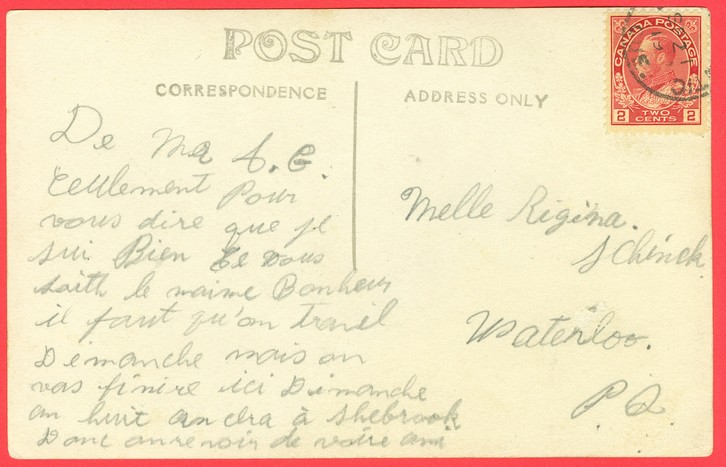 POST CARD
CORRESPONDENCE
ADDRESS ONLY
CANADA POSTAGE
2 TWO CENTS 2
De Ma A. C.
Ceulement Pour
vous dire que je
sui Bien Ce vous
saith le maime Bonheur
il faut qu'on travel
Dimanche mais on
vas finire ici Dimanche
an huit an ira à Shebrook
Donc aurevoir de votre ami
Melle Rigina.
Schinck
Waterloo.
P. Q.